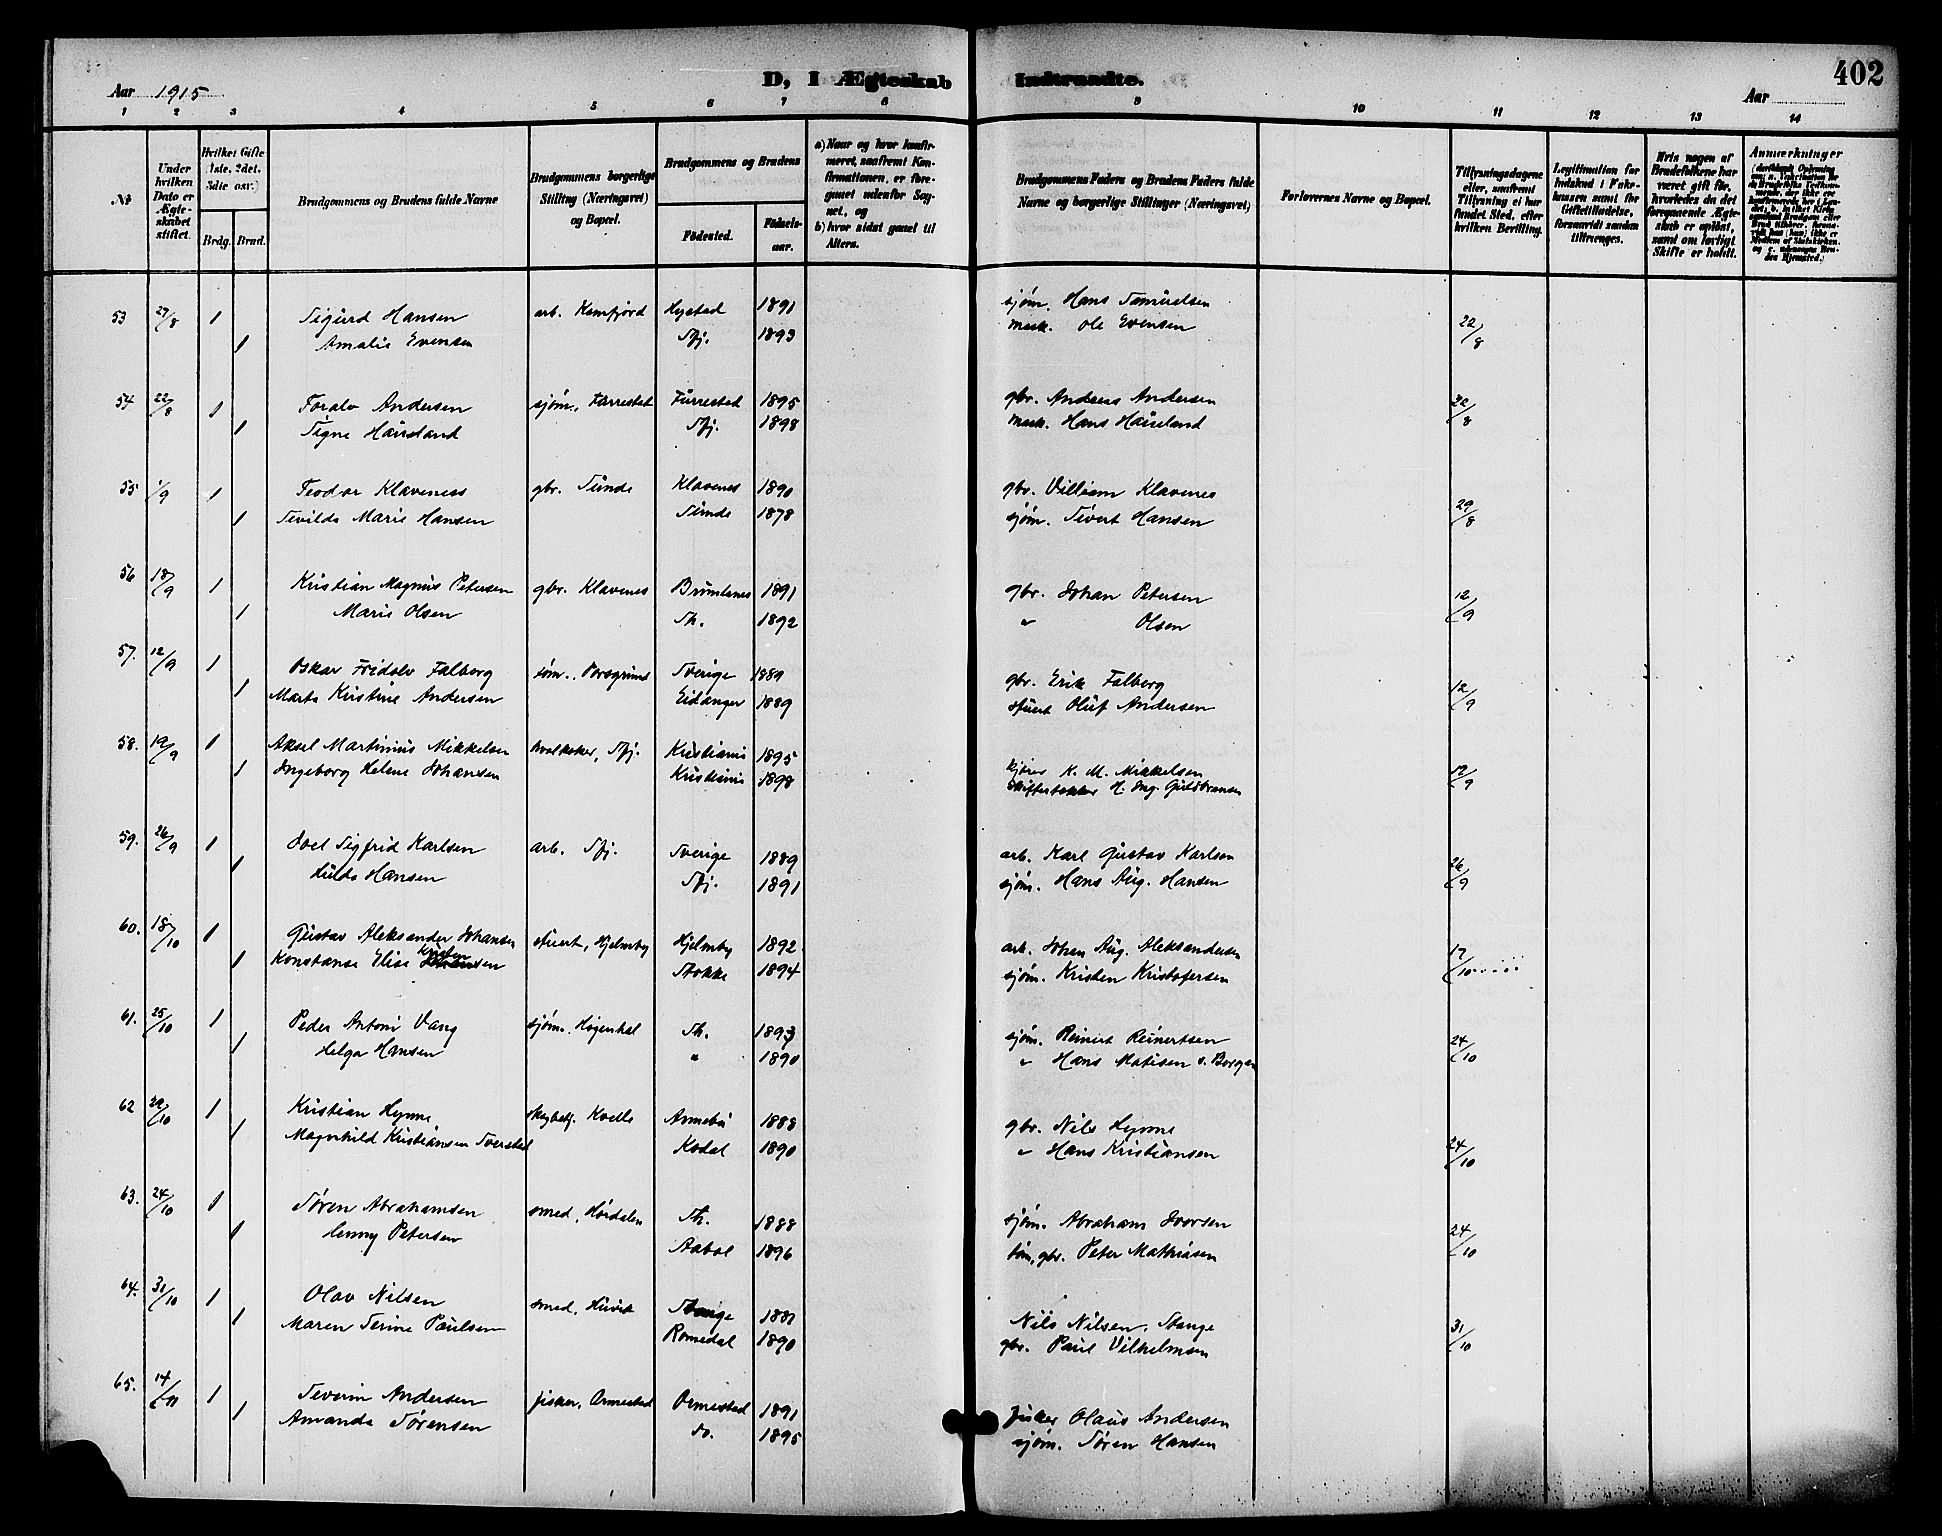 402
D, I Ægteskab Indtraadte.
Aar 1915
Aar
1 2 3 4 5 6 7 8 9 10 11 12 13 14
No
Under hvilken Dato er Ægteskabet stiftet.
Hvilket Gifte (1ste, 2det, 3die osv.)
Brdg. Brud.
Brudgommens og Brudens fulde Navne
Brudgommens borgerlige Stilling (Næringsvei) og Bopæl.
Brudgommens og Brudens
Fødested.
Fødselsaar.
a) Naar og hvor konfirmeret, saafremt Konfirmationen er foregaaet udenfor Sognet, og
b) hvor sidst gaaet til Alters.
Brudgommens Faders og Brudens Faders fulde Navne og borgerlige Stillinger (Næringsvei)
Forlovernes Navne og Bopæl.
Tillysningsdagene eller, saafremt Tillysning ei har fundet Sted, efter hvilken Bevilling.
Legitimation for Indskud i Enkekassen samt for Giftetilladelse, forsaavidt saadan tiltrænges.
Hvis nogen af Brudefolkene har været gift før, hvorledes da det foregaaende Ægteskab er opløst, samt om lovligt Skifte er holdt.
Anmærkninger
53 27/8 1 Sigurd Hansen arb. Kamfjord Hystad 1891 sjøm. Hans Samuelsen 22/8
1 Amalie Evensen Sfj. 1893 mask. Ole Evensen
54 22/8 1 Toralv Andersen sjøm. Furrestad Furrestad 1895 gbr. Andreas Andersen 22/8
1 Signe Hauland Sfj. 1898 mask. Hans Haueland
55 1/9 1 Teodor Klaveness gbr. Sunde Klavenes 1890 gbr. Villiam Klavenes 29/8
1 Sevilda Marie Hansen Sunde 1878 sjøm. Sivert Hansen
56 18/9 1 Kristian Magnus Petersen gbr. Klavenes Bruntanes 1891 gbr. Johan Petersen 12/9
1 Marie Olsen Sh. 1892 " Olsen
57. 12/9 1 Oskar Fridolv Falborg tøm. Porsgrund Sverige 1889 gbr. Erik Falborg 12/9
1 Marta Kristine Andersen Eidanger 1889 stuert Oluf Andersen
58. 19/9 1 Aksel Martinius Mikkelsen hvalkoker, Sfj. Kristiania 1895 kjører K. M. Mikkelsen 12/9
1 Ingeborg Helene Johansen Kristiania 1898 skiftertækker H. Ing. Guldbransen
59. 26/9 1 Joel Sigfrid Karlsen arb. Sfj. Sverige 1889 arb. Karl Gustav Karlsen 26/9
1 Hulda Hansen Sfj. 1891 sjøm. Hans Aug. Hansen
60. 18/10 1 Gustav Aleksander Johansen stuert, Hjelmby Hjelmby 1892 arb. Johan Aug. Aleksandersen 17/10
1 Konstanse Elise Kristensen Stokke 1894 sjøm. Kristen Kristofersen
61. 25/10 1 Peder Antoni Vang sjøm. Haugenhal Sh. 1893 sjøm. Reinert Reinertsen 24/10
1 Helga Hansen " 1890 " Hans Matisen v. Bergan
62 29/10 1 Kristian Hynne skogbetj. Kvelle Arnebu 1888 gbr. Nils Hynne 24/10
1 Magnhild Kristiansen Sverstad Kodal 1890 " Hans Kristiansen
63. 24/10 1 Søren Abrahamsen smed, Haudalen Sh. 1888 sjøm. Abraham Iversen 24/10
1 Jenny Petersen Aabol 1896 tøm, gbr. Peter Mathiasen
64. 31/10 1 Olav Nilsen smed, Huvik Stange 1887 Nils Nilsen, Stange 31/10
1 Maren Serine Paulsen Romedal 1890 gbr. Paul Vilhelmsen
65. 14/11 1 Severin Andersen fisker, Ormestad Ormestad 1891 fisker Olaus Andersen
1 Amanda Sørensen do. 1895 sjøm. Søren Hansen